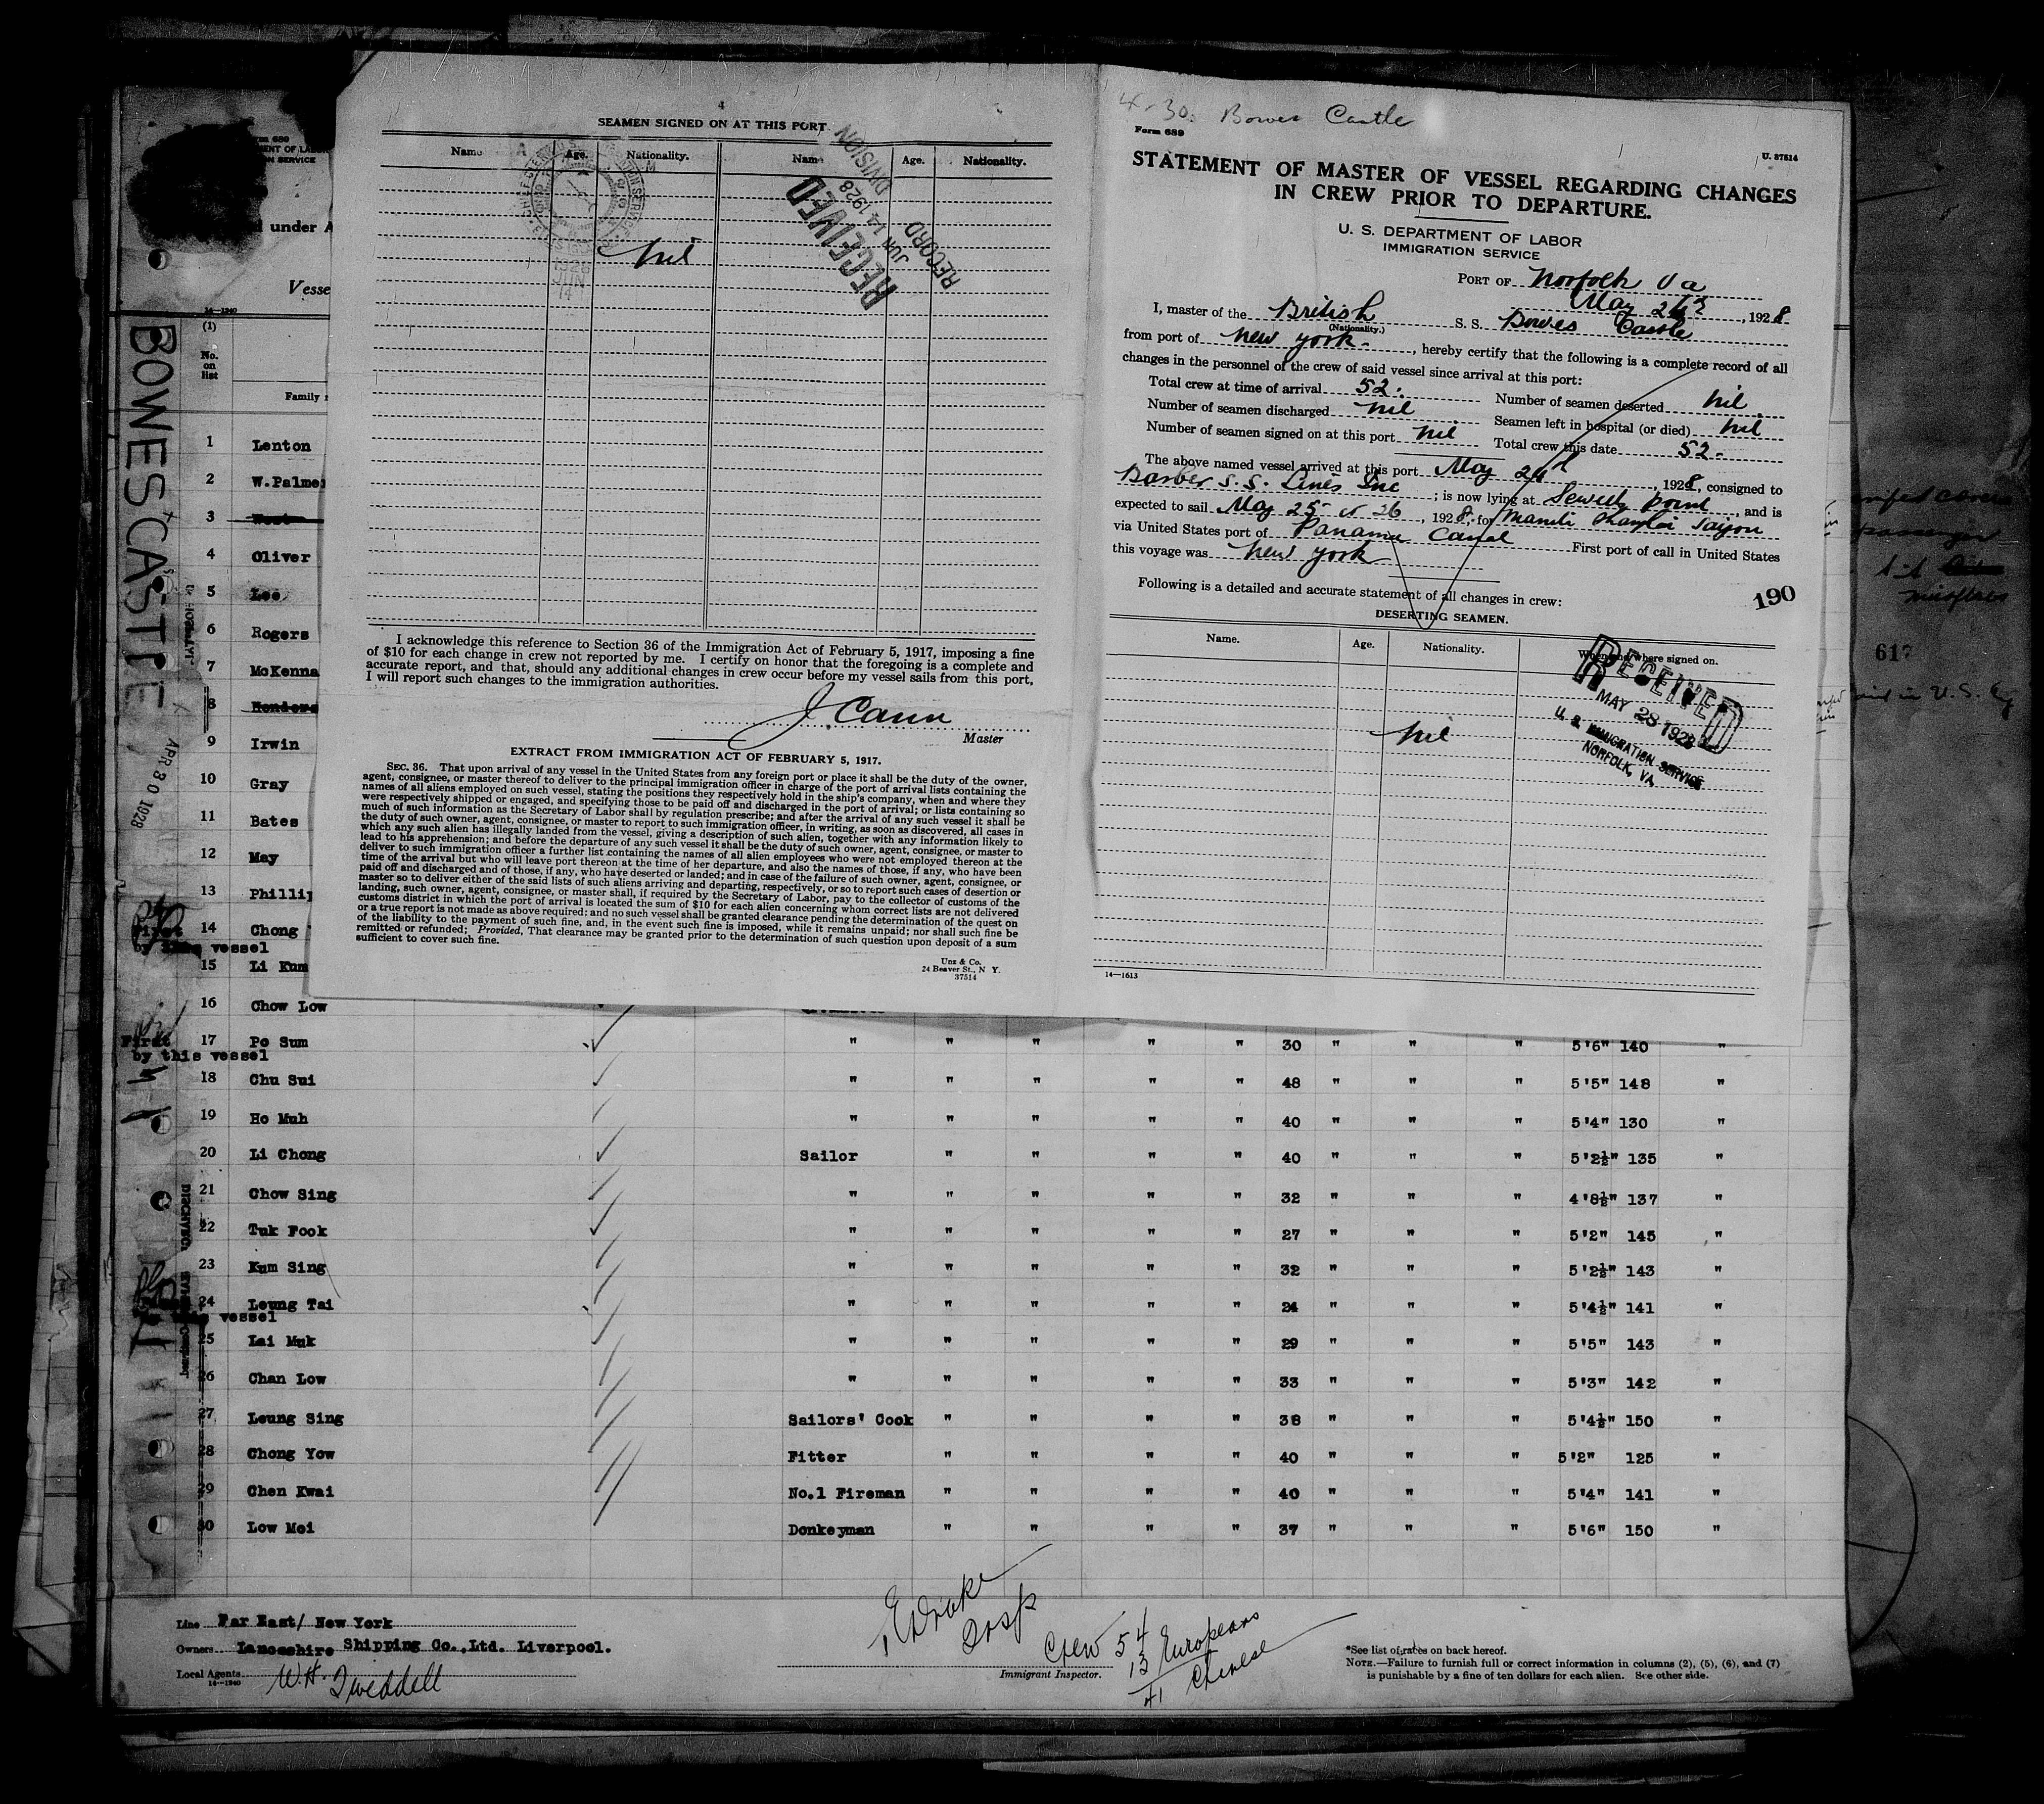 4
SEAMEN SIGNED ON AT THIS PORT
Name Age. Nationality. Name Age. Nationality.
RECEIVED
JUN 14 1928
RECORD
DIVISION
1928
JUN
14
nil
I acknowledge this reference to Section 36 of the Immigration Act of February 5, 1917, imposing a fine
of $10 for each change in crew not reported by me. I certify on honor that the foregoing is a complete and
accurate report, and that, should any additional changes in crew occur before my vessel sails from this port,
I will report such changes to the immigration authorities.
J Cann
Master
EXTRACT FROM IMMIGRATION ACT OF FEBRUARY 5, 1917.
SEC. 36. That upon arrival of any vessel in the United States from any foreign port or place it shall be the duty of the owner,
agent, consignee, or master thereof to deliver to the principal immigration officer in charge of the port of arrival lists containing the
names of all aliens employed on such vessel, stating the positions they respectively hold in the ship's company, when and where they
were respectively shipped or engaged, and specifying those to be paid off and discharged in the port of arrival; or lists containing so
much of such information as the Secretary of Labor shall by regulation prescribe; and after the arrival of any such vessel it shall be
the duty of such owner, agent, consignee, or master to report to such immigration officer, in writing, as soon as discovered, all cases in
which any such alien has illegally landed from the vessel, giving a description of such alien, together with any information likely to
lead to his apprehension; and before the departure of any such vessel it shall be the duty of such owner, agent, consignee, or master to
deliver to such immigration officer a further list containing the names of all alien employees who were not employed thereon at the
time of the arrival but who will leave port thereon at the time of her departure, and also the names of those, if any, who have been
paid off and discharged and of those, if any, who have deserted or landed; and in case of the failure of such owner, agent, consignee, or
master so to deliver either of the said lists of such aliens arriving and departing, respectively, or so to report such cases of desertion or
landing, such owner, agent, consignee, or master shall, if required by the Secretary of Labor, pay to the collector of customs of the
customs district in which the port of arrival is located the sum of $10 for each alien concerning whom correct lists are not delivered
or a true report is not made as above required; and no such vessel shall be granted clearance pending the determination of the quest on
of the liability to the payment of such fine, and, in the event such fine is imposed, while it remains unpaid; nor shall such fine be
remitted or refunded; Provided, That clearance may be granted prior to the determination of such question upon deposit of a sum
sufficient to cover such fine.
Unz & Co.
24 Beaver St., N Y.
37514
4-30. Bowes Castle
Form 689
U. 37514
STATEMENT OF MASTER OF VESSEL REGARDING CHANGES
IN CREW PRIOR TO DEPARTURE.
U. S. DEPARTMENT OF LABOR
IMMIGRATION SERVICE
PORT OF Norfolk Va
May , 1928
I, master of the British S. S. Bowes Castle
(Nationality.)
from port of New York , hereby certify that the following is a complete record of all
changes in the personnel of the crew of said vessel since arrival at this port:
Total crew at time of arrival 52. Number of seamen deserted nil.
Number of seamen discharged nil Seamen left in hospital (or died) nil
Number of seamen signed on at this port nil Total crew this date 52.
The above named vessel arrived at this port May , 1928, consigned to
Barber S.S. Lines Inc ; is now lying at Sewells point , and is
expected to sail May 25 or 26, 1928, for Manila Saigon
via United States port of Panama Canal First port of call in United States
this voyage was New York
Following is a detailed and accurate statement of all changes in crew:
190
DESERTING SEAMEN.
Name. Age. Nationality. When and where signed on.
RECEIVED
MAY 28 1928
U. S. IMMIGRATION SERVICE
NORFOLK, VA.
nil
14—1613
under A
Vesse
14—1240
(1)
No.
on
list
Family
BOWES CASTLE
APR 30 1928
1 Lenton
2 W.Palmer
3 West
4 Oliver
5 Lee
6 Rogers
7 McKenna
8 Henders
9 Irwin
10 Gray
11 Bates
12 May
13 Phillip
14 Chong
First
by this vessel
15 Li Kum
16 Chow Low
17 Po Sum " " " " " 30 " " " 5'6" 140 "
First
by this vessel
18 Chu Sui " " " " " 48 " " " 5'5" 148 "
19 Ho Muh " " " " " 40 " " " 5'4" 130 "
20 Li Chong Sailor " " " " 40 " " " 5'2½" 135 "
21 Chow Sing " " " " " 32 " " " 4'8½" 137 "
22 Tuk Fook " " " " " 27 " " " 5'2" 145 "
23 Kum Sing " " " " " 32 " " " 5'2½" 143 "
24 Leung Tai " " " " " 24 " " " 5'4½" 141 "
vessel
25 Lai Muk " " " " " 29 " " " 5'5" 143 "
26 Chan Low " " " " " 33 " " " 5'3" 142 "
27 Leung Sing Sailors' Cook " " " " 38 " " " 5'4½" 150 "
28 Chong Yow Fitter " " " " 40 " " " 5'2" 125 "
29 Chen Kwai No.1 Fireman " " " " 40 " " " 5'4" 141 "
30 Low Moi Donkeyman " " " " 37 " " " 5'6" 150 "
Line Far East/ New York
Owners Lancashire Shipping Co.,Ltd. Liverpool.
Local Agents W.H. Tweddell
14—1240
Immigrant Inspector.
Crew 54
13 Europeans
41 Chinese
*See list of rates on back hereof.
NOTE.—Failure to furnish full or correct information in columns (2), (5), (6), and (7)
is punishable by a fine of ten dollars for each alien. See other side.
passenger
617
in U.S.